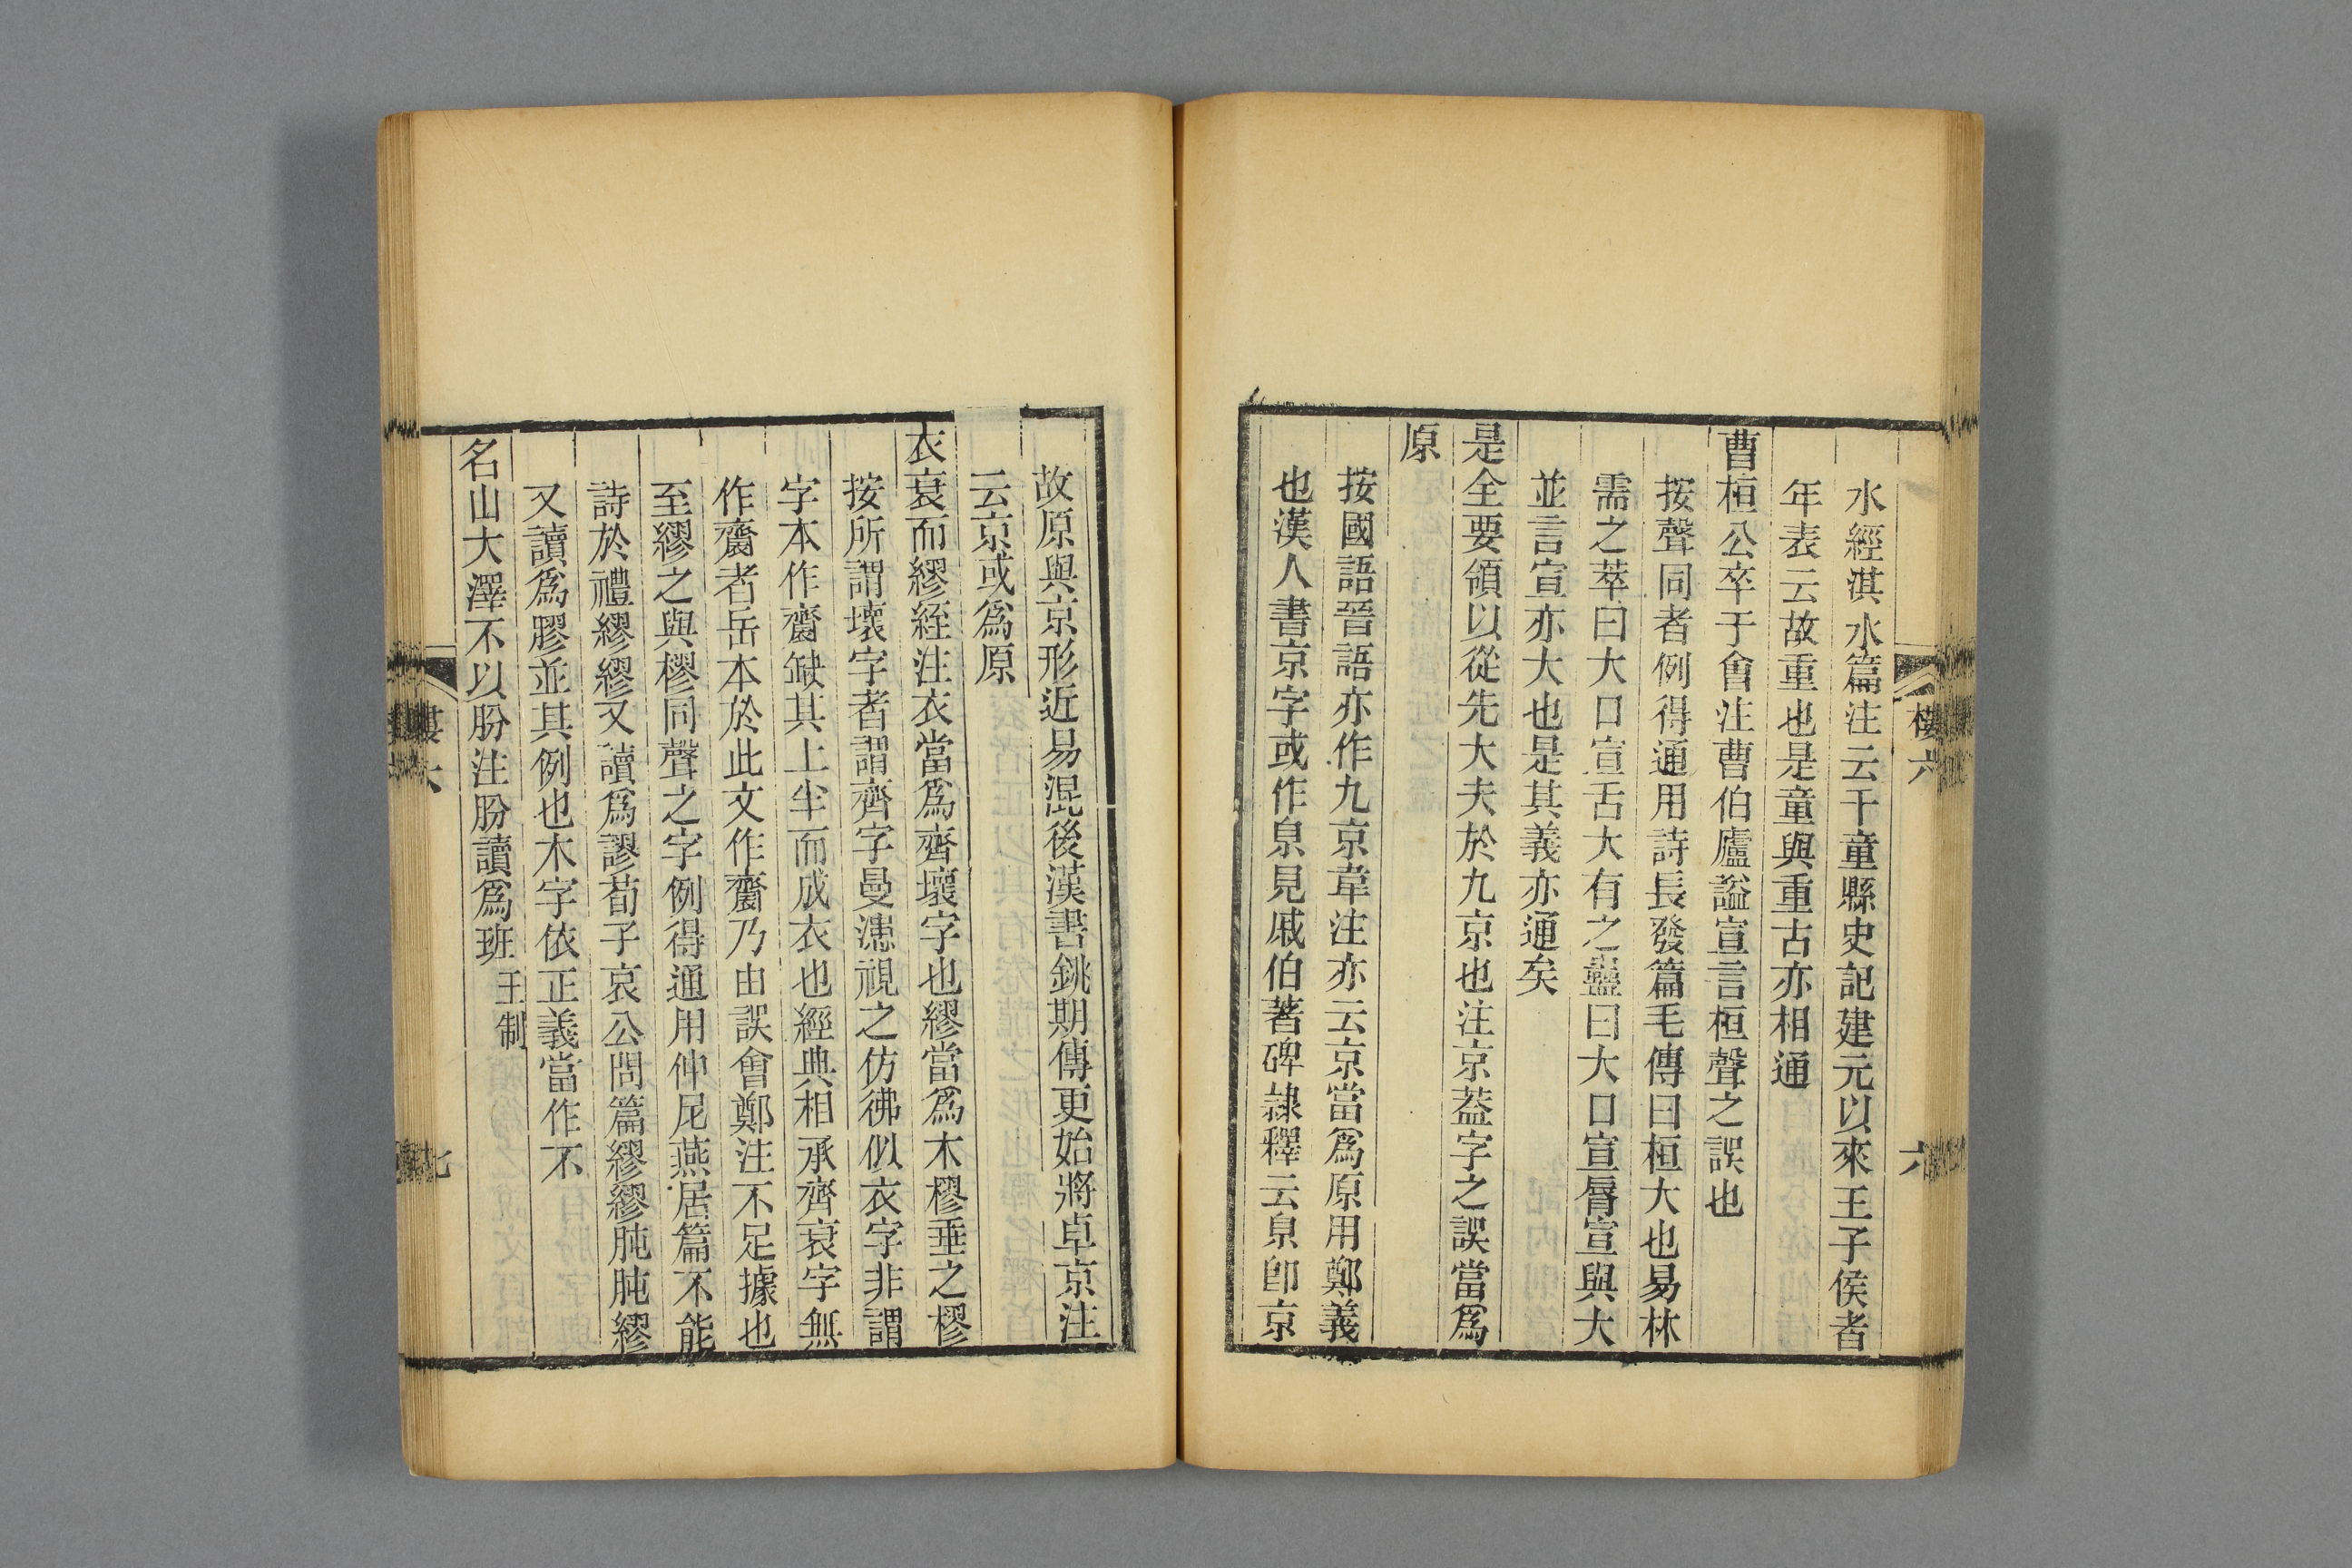 水經淇水篇注云千童縣史記建元以來王子侯者
年表云故重也是童與重古亦相通
曹桓公卒于會注曹伯廬謚宣言桓聲之誤也
按聲同者例得通用詩長發篇毛傳曰桓大也易林
需之萃曰大口宣舌大有之蠱曰大口宣脣宣與大
並言宣亦大也是其義亦通矣
是全要領以從先大夫於九京也注京葢字之誤當爲
原
按國語晉語亦作九京韋注亦云京當爲原用鄭義
也漢人書京字或作㫘見戚伯著碑隷釋云㫘卽京
六
故原與京形近易混後漢書銚期傳更始將卓京注
云京或爲原
衣衰而繆絰注衣當爲齊壞字也繆當爲木樛垂之樛
按所謂壞字者謂齊字曼漶視之仿彿似衣字非謂
字本作齌缺其上半而成衣也經典相承齊衰字無
作齌者岳本於此文作齌乃由誤會鄭注不足據也
至繆之與樛同聲之字例得通用仲尼燕居篇不能
詩於禮繆繆又讀爲謬荀子哀公問篇繆繆肫肫繆
又讀爲膠並其例也木字依正義當作不
名山大澤不以朌注朌讀爲班 王制